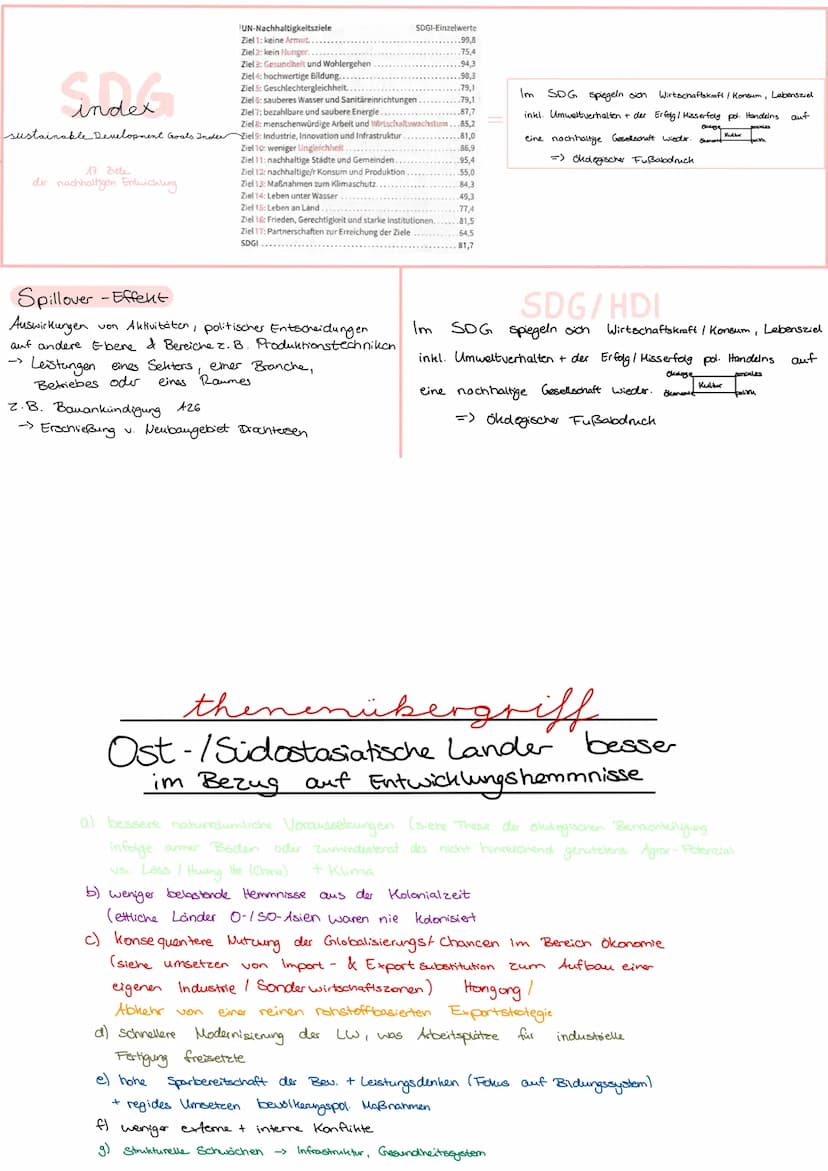 SDG
index
Sustainable Development Goals Index
17 Ziele
der nachhaltigen Entwicklung
UN-Nachhaltigkeitsziele SDGI-Einzelwerte
Ziel 1: keine Armut 99,8
Ziel 2: kein Hunger 75,4
Ziel 3: Gesundheit und Wohlergehen 94,3
Ziel 4: hochwertige Bildung 98,3
Ziel 5: Geschlechtergleichheit 79,1
Ziel 6: sauberes Wasser und Sanitäreinrichtungen 79,1
Ziel 7: bezahlbare und saubere Energie 87,7
Ziel 8: menschenwürdige Arbeit und Wirtschaftswachstum 85,2
Ziel 9: Industrie, Innovation und Infrastruktur 81,0
Ziel 10: weniger Ungleichheit 86,9
Ziel 11: nachhaltige Städte und Gemeinden 95,4
Ziel 12: nachhaltige/r Konsum und Produktion 55,0
Ziel 13: Maßnahmen zum Klimaschutz 84,3
Ziel 14: Leben unter Wasser 49,3
Ziel 15: Leben an Land 77,4
Ziel 16: Frieden, Gerechtigkeit und starke Institutionen 81,5
Ziel 17: Partnerschaften zur Erreichung der Ziele 64,5
SDGI 81,7
=
Im SDG spiegeln sich Wirtschaftskraft / Konsum, Lebensziel
inkl. Umweltverhalten + der Erfolg / Misserfolg pol. Handelns auf
eine nachhaltige Gesellschaft wieder. Kultur
=> Ökologischer Fußabdruck
Spillover - Effekt
Auswirkungen von Aktivitäten, politischer Entscheidungen
auf andere Ebene & Bereiche z.B. Produktionstechniken
→ Leistungen eines Sektors, einer Branche,
Betriebes oder eines Raumes
z.B. Bauankündigung A26
→ Erschließung v. Neubaugebiet Drochtersen
SDG/HDI
Im SDG spiegeln sich Wirtschaftskraft / Konsum, Lebensziel
inkl. Umweltverhalten + der Erfolg / Misserfolg pol. Handelns auf
eine nachhaltige Gesellschaft wieder. Kultur
=> Ökologischer Fußabdruck
themenübergriff
Ost-/Südostasiatische Länder besser
im Bezug auf Entwicklungshemmnisse
a) bessere naturräumliche Voraussetzungen (siehe These der ökologischen Benachteiligung
infolge armer Böden oder zumindestenst des nicht hinreichend genutztens Agrar-Potenzial
vs. Löss / Huang He (China) + Klima
b) weniger belastende Hemmnisse aus der Kolonialzeit
(etliche Länder O-/SO-Asien waren nie kolonisiert
c) konsequentere Nutzung der Globalisierungs/Chancen im Bereich Ökonomie
(siehe umsetzen von Import- & Exportsubstitution zum Aufbau einer
eigenen Industrie / Sonderwirtschaftszonen) Hongong /
Abkehr von einer reinen rohstoffbasierten Exportstrategie
d) schnellere Modernisierung der LW, was Arbeitsplätze für industrielle
Fertigung freisetzte
e) hohe Sparbereitschaft der Bev. + Leistungsdenken (Fokus auf Bildungssystem)
+ regides Umsetzen bevölkerungspol. Maßnahmen
f) weniger externe + interne Konflikte
g) strukturelle Schwächen → Infrastruktur, Gesundheitssystem